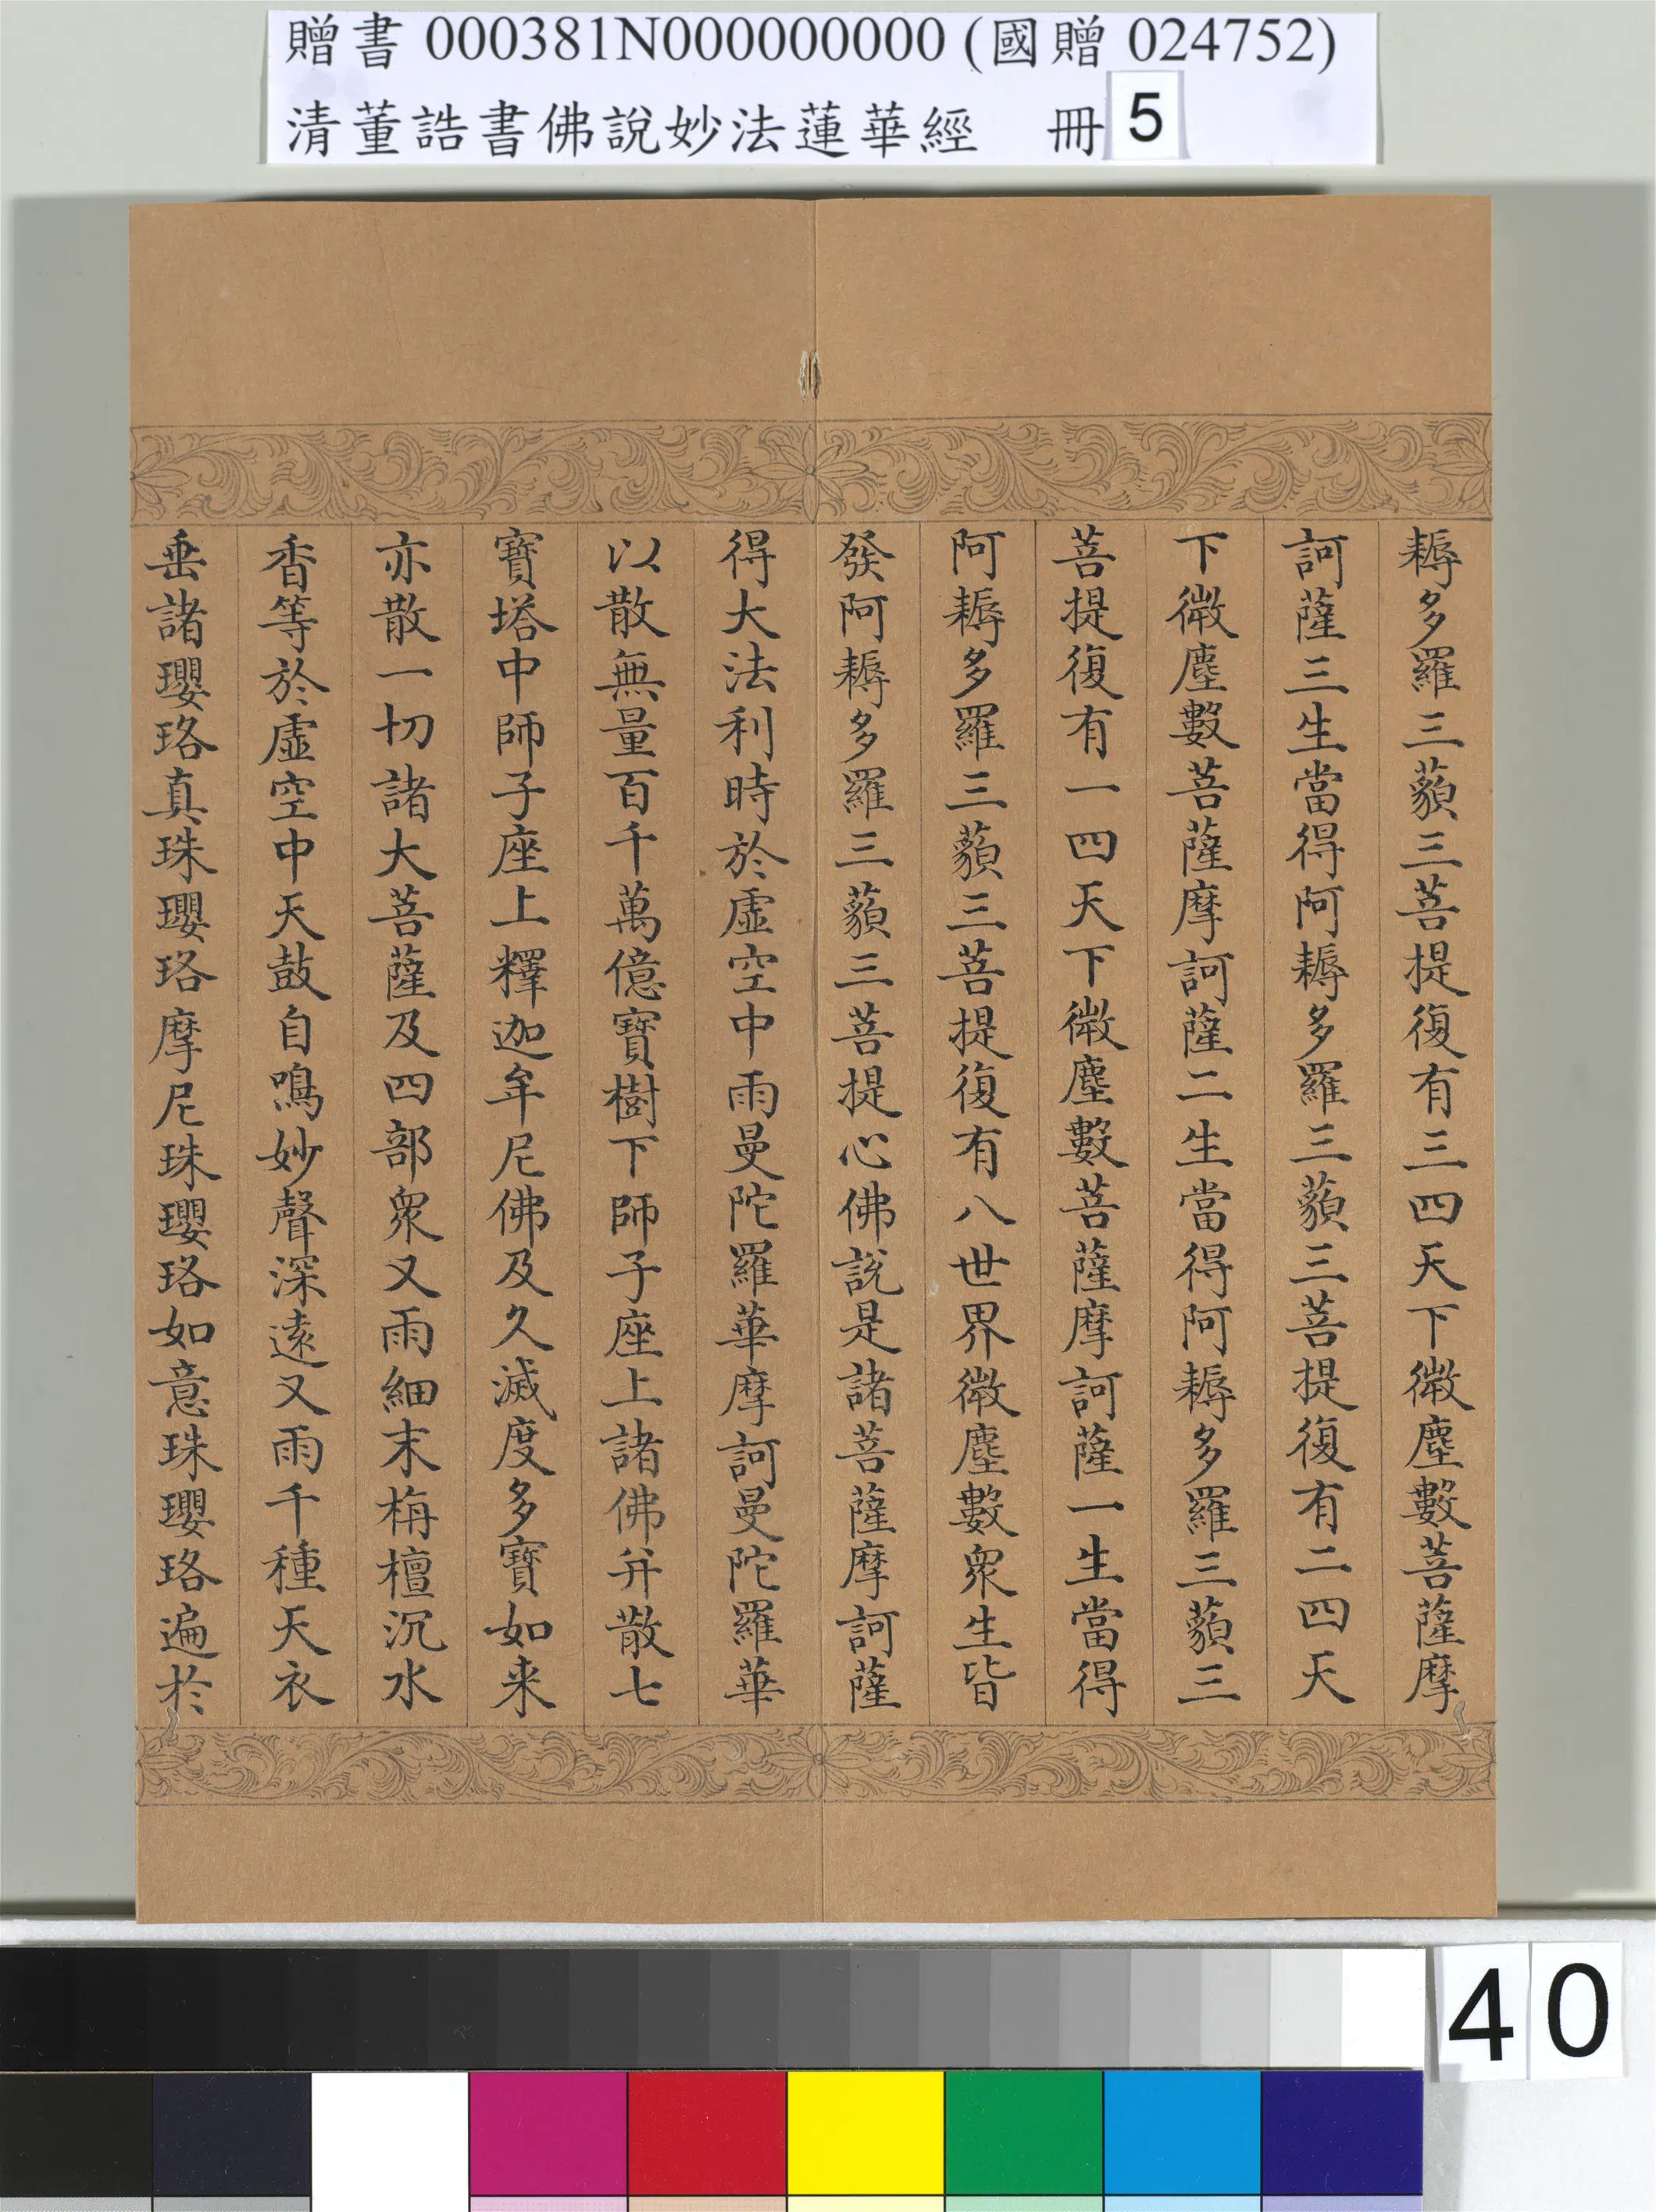 贈書 000381N000000000 (國贈 024752)
清董誥書佛說妙法蓮華經 冊 5
耨多羅三藐三菩提復有三四天下微塵數菩薩摩
訶薩三生當得阿耨多羅三藐三菩提復有二四天
下微塵數菩薩摩訶薩二生當得阿耨多羅三藐三
菩提復有一四天下微塵數菩薩摩訶薩一生當得
阿耨多羅三藐三菩提復有八世界微塵數眾生皆
發阿耨多羅三藐三菩提心佛說是諸菩薩摩訶薩
得大法利時於虛空中雨曼陀羅華摩訶曼陀羅華
以散無量百千萬億寶樹下師子座上諸佛并散七
寶塔中師子座上釋迦牟尼佛及久滅度多寶如来
亦散一切諸大菩薩及四部眾又雨細末栴檀沉水
香等於虛空中天鼓自鳴妙聲深遠又雨千種天衣
垂諸瓔珞真珠瓔珞摩尼珠瓔珞如意珠瓔珞遍於
40